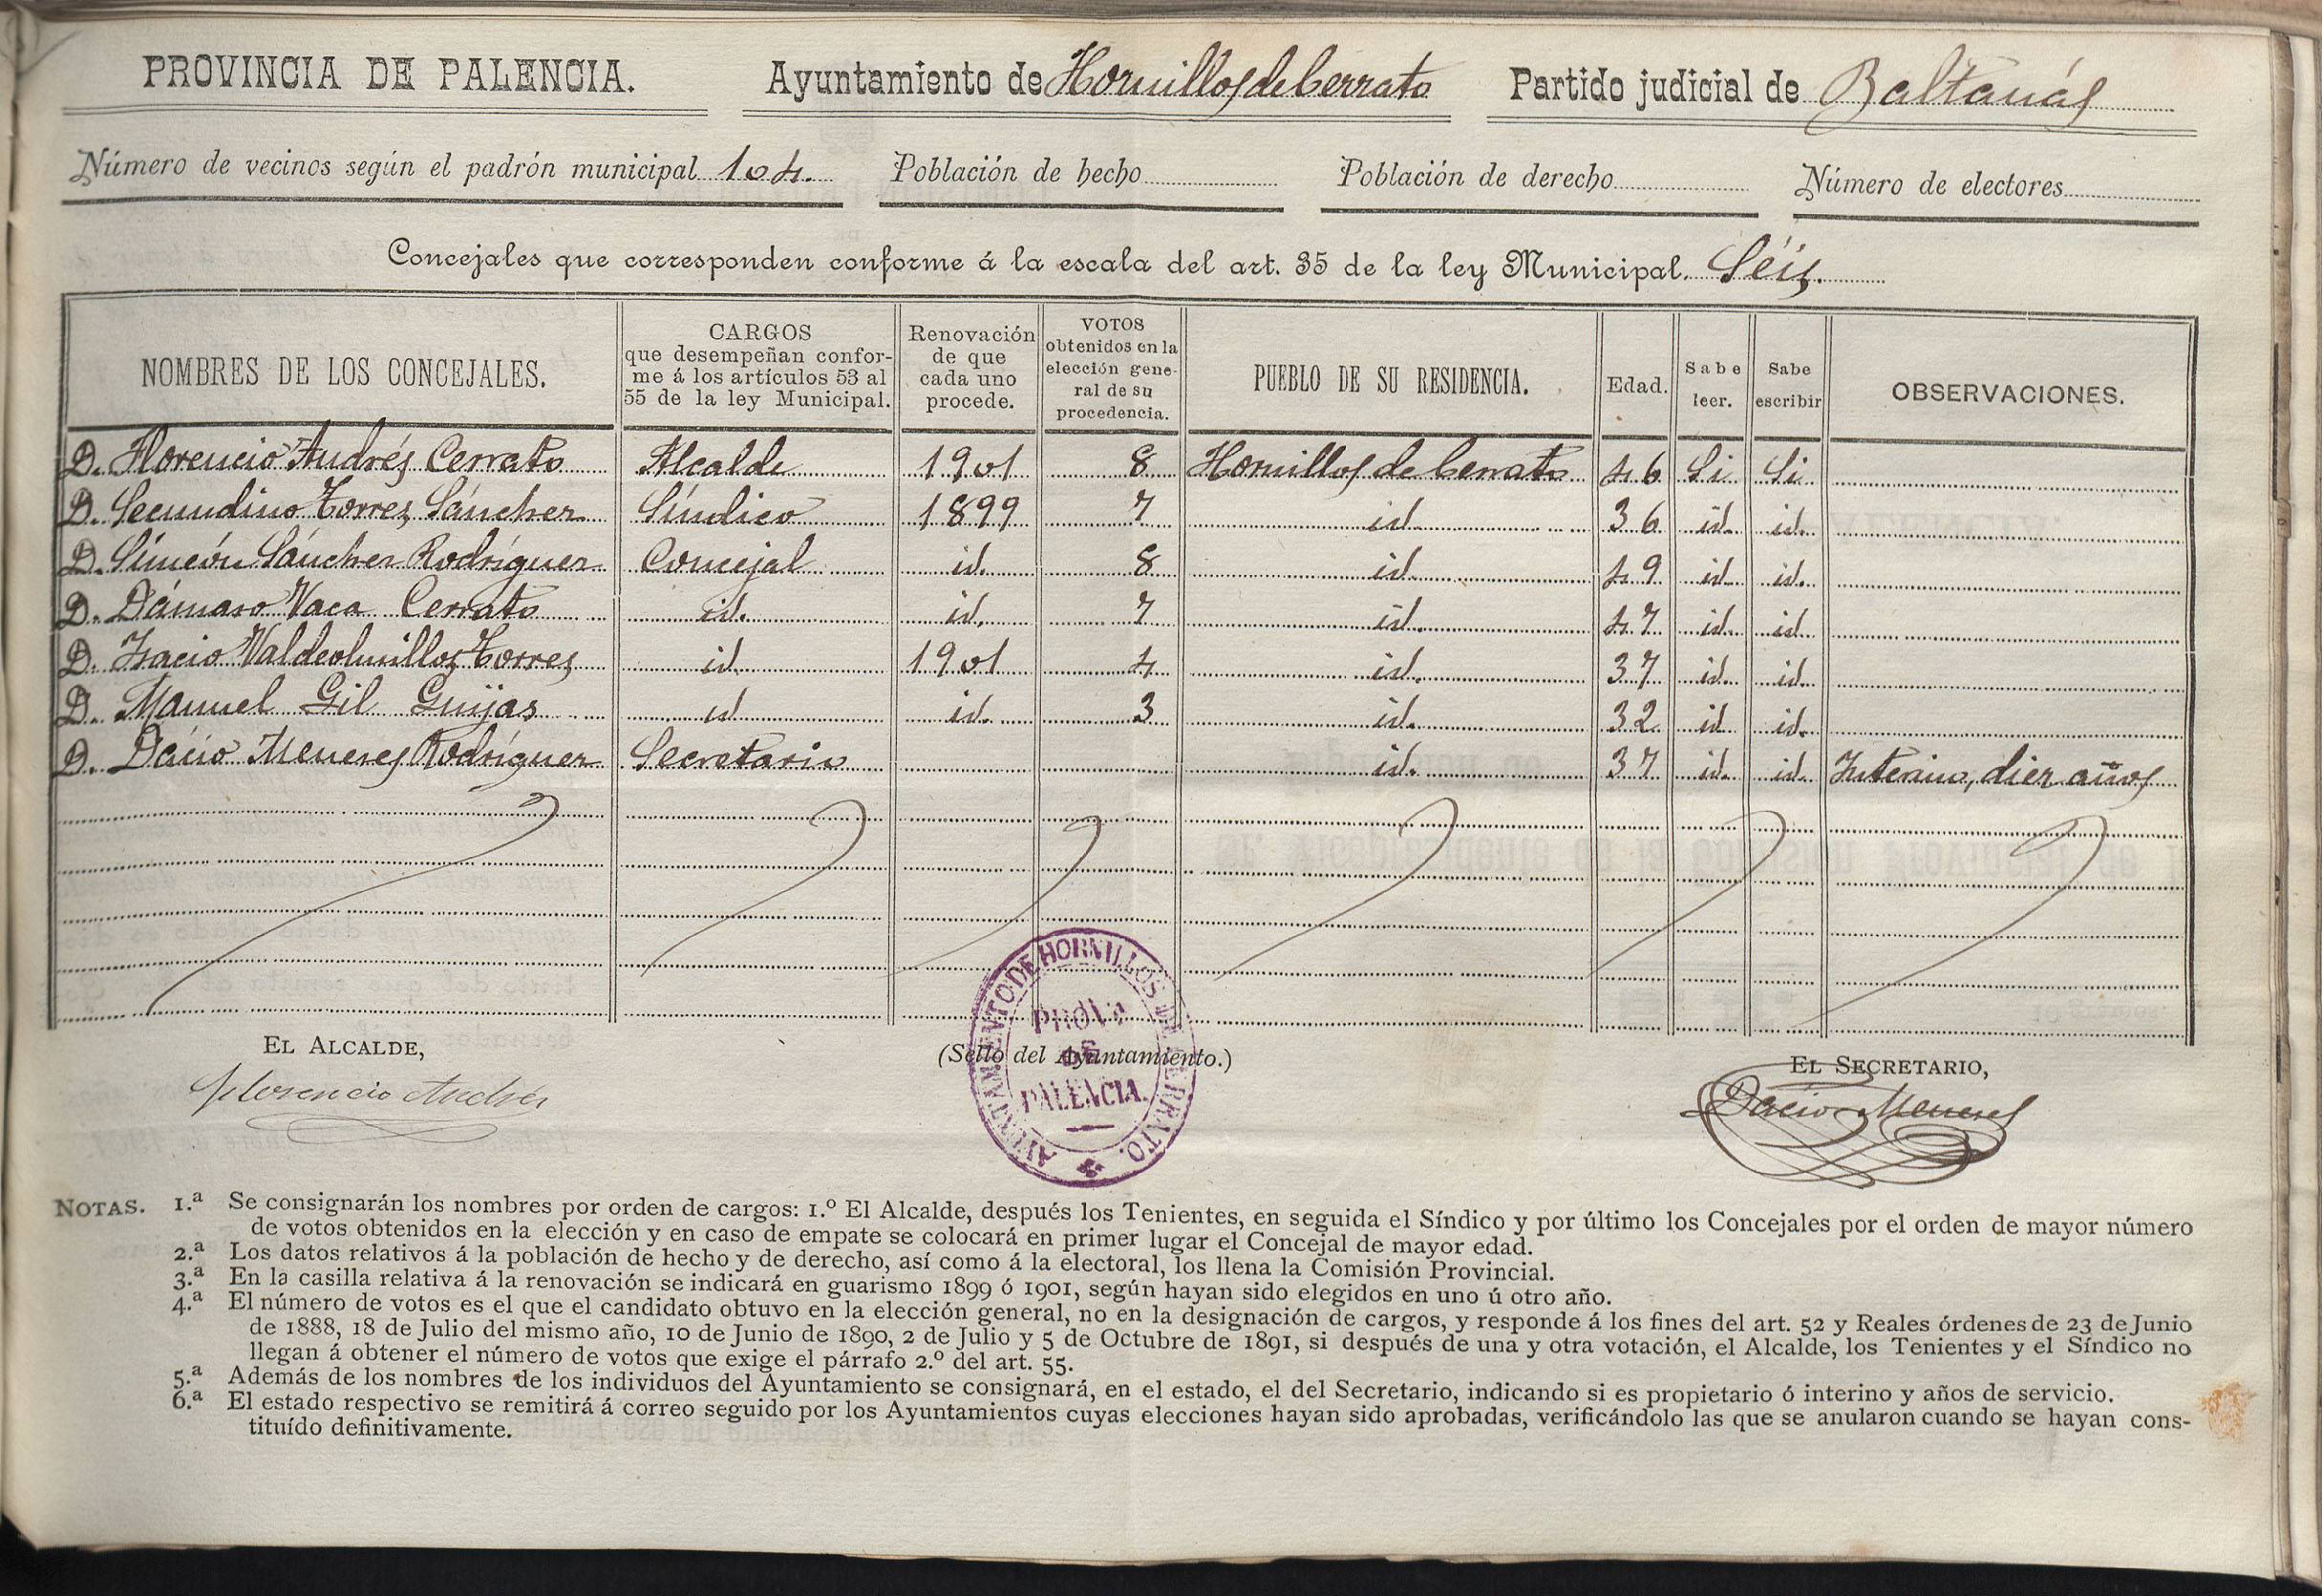 PROVINCIA DE PALENCIA. Ayuntamiento de Hornillos de Cerrato Partido judicial de Baltanás
Número de vecinos según el padrón municipal 104. Población de hecho Población de derecho Número de electores
Concejales que corresponden conforme á la escala del art. 35 de la ley Municipal. Séis.
NOMBRES DE LOS CONCEJALES. CARGOS que desempeñan confor-me á los artículos 53 al 55 de la ley Municipal. Renovación de que cada uno procede. VOTOS obtenidos en la elección gene-ral de su procedencia. PUEBLO DE SU RESIDENCIA. Edad. Sabe leer. Sabe escribir OBSERVACIONES.
D. Florencio Andrés Cerrato Alcalde 1901 8 Hornillos de Cerrato 46 Si Si
D. Secundino Torres Sánchez Síndico 1899 7 id. 36 id. id.
D. Simeón Sánchez Rodríguez Concejal id. 8 id. 49 id. id.
D. Dámaso Vaca Cerrato id. id. 7 id. 47 id. id.
D. Isacio Valdeolmillos Torres id. 1901 4 id. 37 id. id.
D. Manuel Gil Guijas id id. 3 id. 32 id id.
D. Dacio Meneses Rodríguez Secretario id. 37 id. id. Interino, diez años
EL ALCALDE, (Sello del Ayuntamiento.) EL SECRETARIO,
Florencio Andrés Dacio Meneses
AYUNTAMIENTO DE HORNILLOS DE CERRATO.
PROVa
DE
PALENCIA.
NOTAS. 1.ª Se consignarán los nombres por orden de cargos: 1.º El Alcalde, después los Tenientes, en seguida el Síndico y por último los Concejales por el orden de mayor número
de votos obtenidos en la elección y en caso de empate se colocará en primer lugar el Concejal de mayor edad.
2.ª Los datos relativos á la población de hecho y de derecho, así como á la electoral, los llena la Comisión Provincial.
3.ª En la casilla relativa á la renovación se indicará en guarismo 1899 ó 1901, según hayan sido elegidos en uno ú otro año.
4.ª El número de votos es el que el candidato obtuvo en la elección general, no en la designación de cargos, y responde á los fines del art. 52 y Reales órdenes de 23 de Junio
de 1888, 18 de Julio del mismo año, 10 de Junio de 1890, 2 de Julio y 5 de Octubre de 1891, si después de una y otra votación, el Alcalde, los Tenientes y el Síndico no
llegan á obtener el número de votos que exige el párrafo 2.º del art. 55.
5.ª Además de los nombres de los individuos del Ayuntamiento se consignará, en el estado, el del Secretario, indicando si es propietario ó interino y años de servicio.
6.ª El estado respectivo se remitirá á correo seguido por los Ayuntamientos cuyas elecciones hayan sido aprobadas, verificándolo las que se anularon cuando se hayan cons-
tituído definitivamente.